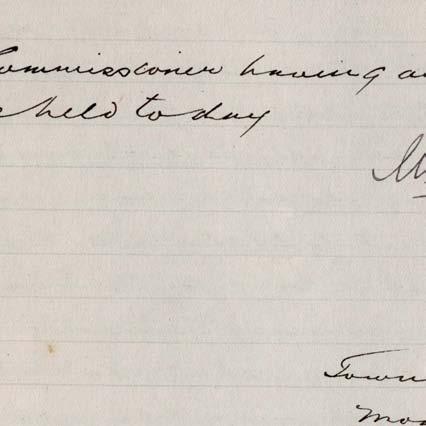 Commissioner having a
held today
Town
Mo